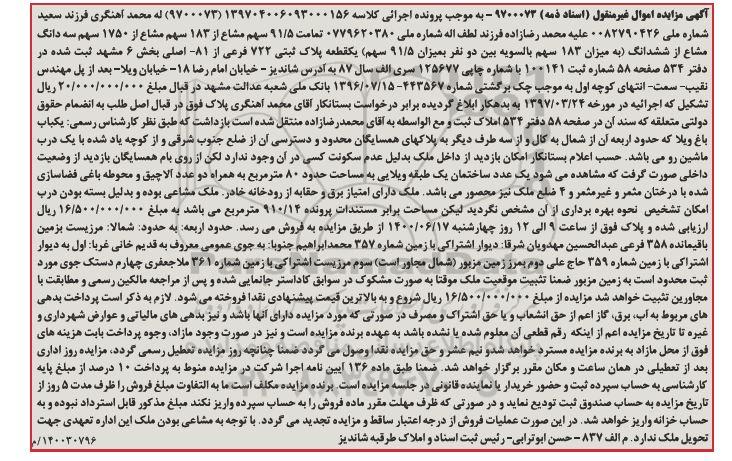 آگهی مزایده اموال غیرمنقول (اسناد ذمه) ۹۷۰۰۰۷۳ - به موجب پرونده اجرائی کلاسه ۱۳۹۷۰۴۰۰۶۰۹۳۰۰۰۱۵۶ (۹۷۰۰۰۷۳) له محمد آهنگری فرزند سعید
شماره ملی ۰۰۸۲۷۹۰۴۲۶ علیه محمد رضازاده فرزند لطف اله شماره ملی ۰۷۷۹۶۲۰۳۸۰ تمامت ۹۱/۵ سهم مشاع از ۱۸۳ سهم مشاع از ۱۷۵۰ سهم سه دانگ
مشاع از ششدانگ (به میزان ۱۸۳ سهم بالسویه بین دو نفر بمیزان ۹۱/۵ سهم) یکقطعه پلاک ثبتی ۷۲۲ فرعی از ۸۱- اصلی بخش ۶ مشهد ثبت شده در
دفتر ۵۳۴ صفحه ۵۸ شماره ثبت ۱۰۰۱۴۱ با شماره چاپی ۱۲۵۶۷۷ سری الف سال ۸۷ به آدرس شاندیز - خیابان امام رضا ۱۸- خیابان ویلا- بعد از پل مهندس
نقیب- سمت- انتهای کوچه اول به موجب چک برگشتی شماره ۴۴۳۵۶۷- ۱۳۹۶/۰۷/۱۵ بانک ملی شعبه عدالت مشهد در قبال مبلغ ۲۰/۰۰۰/۰۰۰/۰۰۰ ریال
تشکیل که اجرائیه در مورخه ۱۳۹۷/۰۳/۲۴ به بدهکار ابلاغ گردیده برابر درخواست بستانکار آقای محمد آهنگری پلاک فوق در قبال اصل طلب به انضمام حقوق
دولتی متعلقه که سند آن در صفحه ۵۸ دفتر ۵۳۴ املاک ثبت و مع الواسطه به آقای محمدرضازاده منتقل شده است بازداشت که طبق نظر کارشناس رسمی: یکباب
باغ ویلا که حدود اربعه آن از شمال به کال و از سه طرف دیگر به پلاکهای همسایگان محدود و دسترسی آن از ضلع جنوب شرقی و از کوچه یاد شده با یک درب
ماشین رو می باشد. حسب اعلام بستانکار امکان بازدید از داخل ملک بدلیل عدم سکونت کسی در آن وجود ندارد لکن از روی بام همسایگان بازدید از وضعیت
داخلی صورت گرفت که مشاهده می شود یک عدد ساختمان یک طبقه ویلایی به مساحت حدود ۸۰ مترمربع به همراه دو عدد آلاچیق و محوطه باغی فضاسازی
شده با درختان مثمر و غیرمثمر و ۴ ضلع ملک نیز محصور می باشد. ملک دارای امتیاز برق و حقابه از رودخانه خادر. ملک مشاعی بوده و بدلیل بسته بودن درب
امکان تشخیص نحوه بهره برداری از آن مشخص نگردید لیکن مساحت برابر مستندات پرونده ۹۱۰/۱۴ مترمربع می باشد به مبلغ ۱۶/۵۰۰/۰۰۰/۰۰۰ ریال
ارزیابی شده و پلاک فوق از ساعت ۹ الی ۱۲ روز چهارشنبه ۱۴۰۰/۰۶/۱۷ از طریق مزایده به فروش می رسد. حدود اربعه: به حدود: شمالا: مرزیست بزمین
باقیمانده ۳۵۸ فرعی عبدالحسین مهدویان شرقا: دیوار اشتراکی با زمین شماره ۳۵۷ محمدابراهیم جنوبا: به جوی عمومی معروف به قدیم خانی غربا: اول به دیوار
اشتراکی با زمین شماره ۳۵۹ حاج علی دوم بمرز زمین مزبور (شمال مجاور است) سوم مرزیست اشتراکی با زمین شماره ۳۶۱ ملاجعفری چهارم دستک جوی مورد
ثبت محدود است به زمین مزبور ضمنا تثبیت موقعیت ملک موقتا به صورت مشکوک در سوابق کاداستر جانمایی شده و پس از مراجعه مالکین رسمی و مطابقت با
مجاورین تثبیت خواهد شد مزایده از مبلغ ۱۶/۵۰۰/۰۰۰/۰۰۰ ریال شروع و به بالاترین قیمت پیشنهادی نقدا فروخته می شود. لازم به ذکر است پرداخت بدهی
های مربوط به آب، برق، گاز اعم از حق انشعاب و یا حق اشتراک و مصرف در صورتی که مورد مزایده دارای آنها باشد و نیز بدهی های مالیاتی و عوارض شهرداری و
غیره تا تاریخ مزایده اعم از اینکه رقم قطعی آن معلوم شده یا نشده باشد به عهده برنده مزایده است و نیز در صورت وجود مازاد، وجوه پرداخت بابت هزینه های
فوق از محل مازاد به برنده مزایده مسترد خواهد شدو نیم عشر و حق مزایده نقدا وصول می گردد ضمنا چنانچه روز مزایده تعطیل رسمی گردد، مزایده روز اداری
بعد از تعطیلی در همان ساعت و مکان مقرر برگزار خواهد شد. ضمنا طبق ماده ۱۳۶ آیین نامه اجرا شرکت در مزایده منوط به پرداخت ۱۰ درصد از مبلغ پایه
کارشناسی به حساب سپرده ثبت و حضور خریدار یا نماینده قانونی در جلسه مزایده است. برنده مزایده مکلف است ما به التفاوت مبلغ فروش را ظرف مدت ۵ روز از
تاریخ مزایده به حساب صندوق ثبت تودیع نماید و در صورتی که ظرف مهلت مقرر مانده فروش را به حساب سپرده واریز نکند مبلغ مذکور قابل استرداد نبوده و به
حساب خزانه واریز خواهد شد. در این صورت عملیات فروش از درجه اعتبار ساقط و مزایده تجدید می گردد. با توجه به مشاعی بودن ملک این اداره تعهدی جهت
تحویل ملک ندارد. م الف ۸۳۷ - حسن ابوترابی- رئیس ثبت اسناد و املاک طرقبه شاندیز
۱۴۰۰۳۰۷۹۶/م